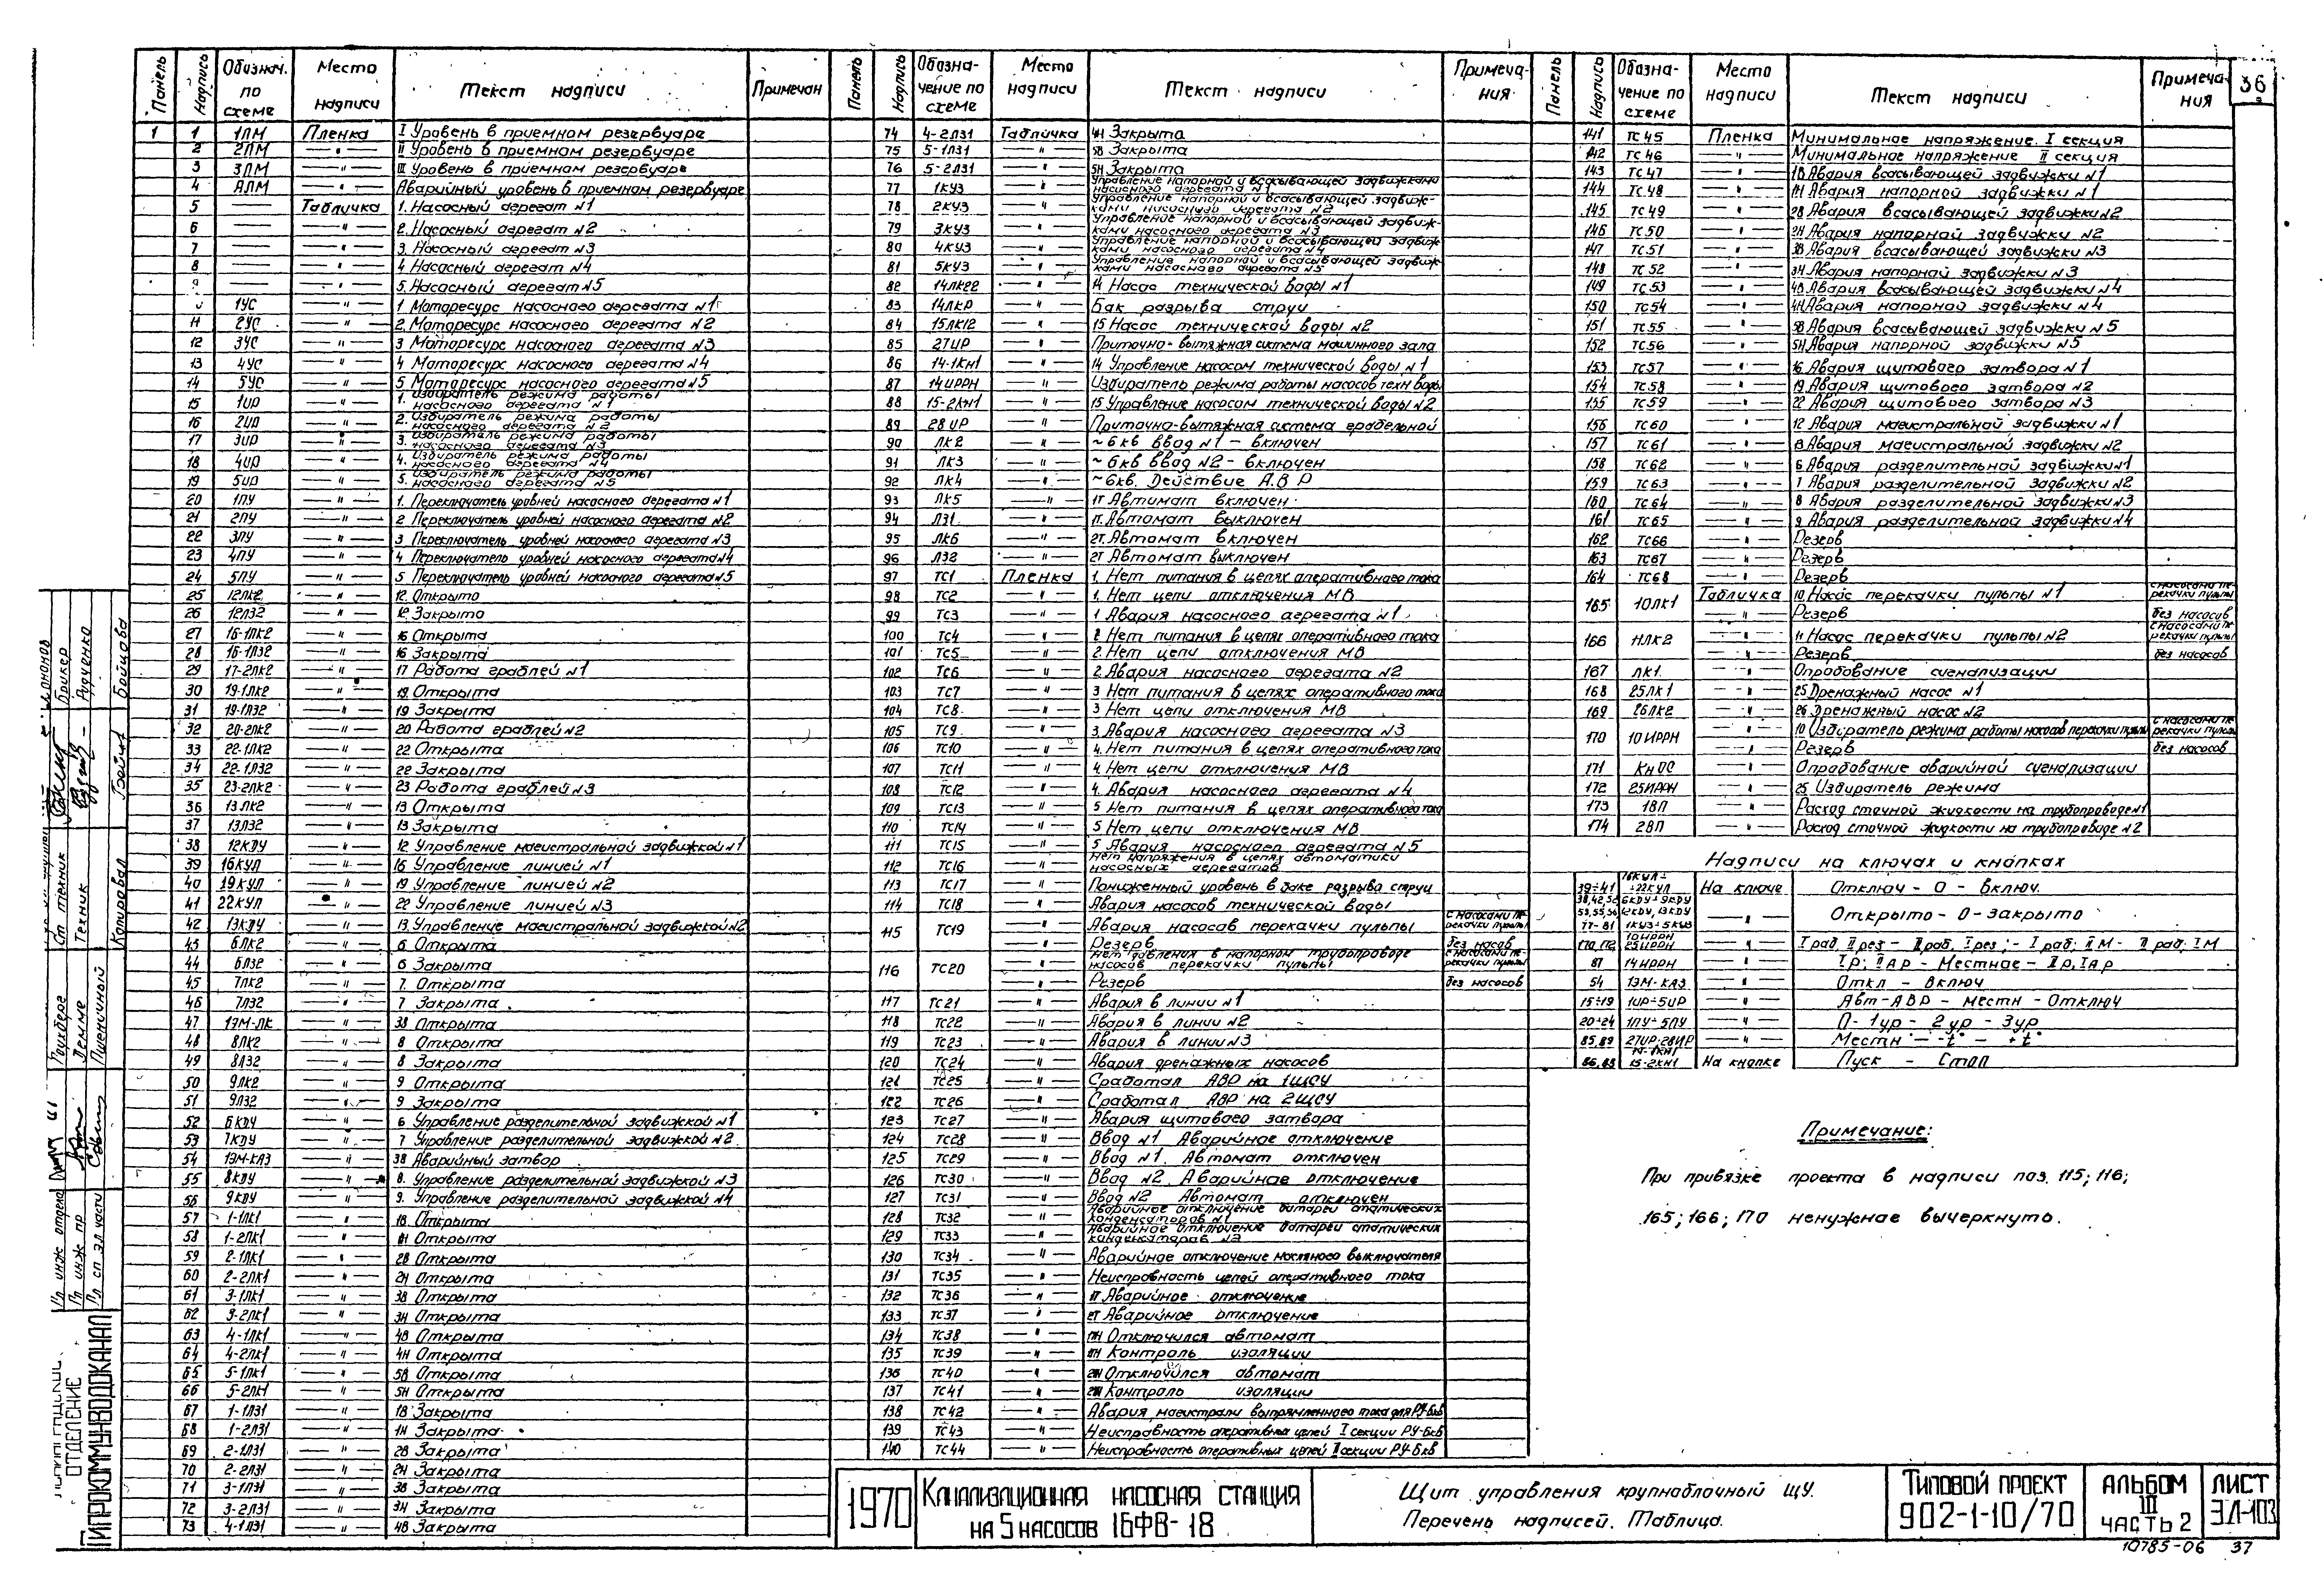 36
Панель Надпись Обознач. по схеме Место надписи Текст надписи Примечан
1 1 1ЛМ Пленка I Уровень в приемном резервуаре
2 2ЛМ —"— II Уровень в приемном резервуаре
3 3ЛМ —"— III Уровень в приемном резервуаре
4 АЛМ —"— Аварийный уровень в приемном резервуаре
5 — Табличка 1. Насосный агрегат №1
6 — —"— 2. Насосный агрегат №2
7 — —"— 3. Насосный агрегат №3
8 — —"— 4 Насосный агрегат №4
9 — —"— 5. Насосный агрегат №5
1УС —"— 1 Моторесурс насосного агрегата №1
11 2УС —"— 2. Моторесурс насосного агрегата №2
12 3УС —"— 3 Моторесурс насосного агрегата №3
13 4УС —"— 4 Моторесурс насосного агрегата №4
14 5УС —"— 5 Моторесурс насосного агрегата №5
15 1ИР —"— 1. Избиратель режима работы насосного агрегата №1
16 2ИР —"— 2. Избиратель режима работы насосного агрегата №2
17 3ИР —"— 3. Избиратель режима работы насосного агрегата №3
18 4ИР —"— 4. Избиратель режима работы насосного агрегата №4
19 5ИР —"— 5. Избиратель режима работы насосного агрегата №5
20 1ПУ —"— 1. Переключатель уровней насосного агрегата №1
21 2ПУ —"— 2 Переключатель уровней насосного агрегата №2
22 3ПУ —"— 3 Переключатель уровней насосного агрегата №3
23 4ПУ —"— 4 Переключатель уровней насосного агрегата №4
24 5ПУ —"— 5 Переключатель уровней насосного агрегата №5
25 12ЛК2 —"— 12. Открыто
26 12ЛЗ2 —"— 12. Закрыто
27 16-1ЛК2 —"— 16 Открыта
28 16-1ЛЗ2 —"— 16 Закрыта
29 17-2ЛК2 —"— 17 Работа граблей №1
30 19-1ЛК2 —"— 19. Открыта
31 19-1ЛЗ2 —"— 19 Закрыта
32 20-2ЛК2 —"— 20 Работа граблей №2
33 22-1ЛК2 —"— 22 Открыта
34 22-1ЛЗ2 —"— 22 Закрыта
35 23-2ЛК2 —"— 23 Работа граблей №3
36 13ЛК2 —"— 13 Открыта
37 13ЛЗ2 —"— 13 Закрыта
38 12КДУ —"— 12 Управление магистральной задвижкой №1
39 16КУЛ —"— 16 Управление линией №1
40 19КУЛ —"— 19 Управление линией №2
41 22КУЛ —"— 22 Управление линией №3
42 13КДУ —"— 13. Управление магистральной задвижкой №2
43 6ЛК2 —"— 6 Открыта
44 6ЛЗ2 —"— 6 Закрыта
45 7ЛК2 —"— 7. Открыта
46 7ЛЗ2 —"— 7 Закрыта
47 1ЭМ-ЛК —"— 38 Открыта
48 8ЛК2 —"— 8 Открыта
49 8ЛЗ2 —"— 8 Закрыта
50 9ЛК2 —"— 9 Открыта
51 9ЛЗ2 —"— 9 Закрыта
52 6КДУ —"— 6 Управление разделительной задвижкой №1
53 7КДУ —"— 7 Управление разделительной задвижкой №2
54 1ЭМ-КАЗ —"— 38 Аварийный затвор
55 8КДУ —"— 8. Управление разделительной задвижкой №3
56 9КДУ —"— 9. Управление разделительной задвижкой №4
57 1-1ЛК1 —"— 1В. Открыта
58 1-2ЛК1 —"— 1Н Открыта
59 2-1ЛК1 —"— 2В Открыта
60 2-2ЛК1 —"— 2Н Открыта
61 3-1ЛК1 —"— 3В Открыта
62 3-2ЛК1 —"— 3Н Открыта
63 4-1ЛК1 —"— 4В Открыта
64 4-2ЛК1 —"— 4Н Открыта
65 5-1ЛК1 —"— 5В Открыта
66 5-2ЛК1 —"— 5Н Открыта
67 1-1ЛЗ1 —"— 1В Закрыта
68 1-2ЛЗ1 —"— 1Н Закрыта
69 2-1ЛЗ1 —"— 2В Закрыта
70 2-2ЛЗ1 —"— 2Н Закрыта
71 3-1ЛЗ1 —"— 3В Закрыта
72 3-2ЛЗ1 —"— 3Н Закрыта
73 4-1ЛЗ1 —"— 4В Закрыта
Панель Надпись Обозначение по схеме Место надписи Текст надписи Примечания
74 4-2ЛЗ1 Табличка 4Н Закрыта
75 5-1ЛЗ1 —"— 5В Закрыта
76 5-2ЛЗ1 —"— 5Н Закрыта
77 1КУЗ —"— Управление напорной и всасывающей задвижками насосного агрегата №1
78 2КУЗ —"— Управление напорной и всасывающей задвижками насосного агрегата №2
79 3КУЗ —"— Управление напорной и всасывающей задвижками насосного агрегата №3
80 4КУЗ —"— Управление напорной и всасывающей задвижками насосного агрегата №4
81 5КУЗ —"— Управление напорной и всасывающей задвижками насосного агрегата №5
82 14ЛК22 —"— 14 Насос технической воды №1
83 14ЛКР —"— Бак разрыва струи
84 15ЛК12 —"— 15 Насос технической воды №2
85 27ИР —"— Приточно-вытяжная система машинного зала
86 14-1КН1 —"— 14 Управление насосом технической воды №1
87 14ИРРН —"— Избиратель режима работы насосов техн воды
88 15-2КН1 —"— 15 Управление насосом технической воды №2
89 28ИР —"— Приточно-вытяжная система грабельной
90 ЛК2 —"— ~6кв ввод №1 – включен
91 ЛК3 —"— ~6кв ввод №2 – включен
92 ЛК4 —"— ~6кв. Действие АВР
93 ЛК5 —"— 1Т Автомат включен
94 ЛЗ1 —"— 1Т. Автомат выключен
95 ЛК6 —"— 2Т. Автомат включен
96 ЛЗ2 —"— 2Т Автомат выключен
97 ТС1 Пленка 1. Нет питания в цепях оперативного тока
98 ТС2 —"— 1. Нет цепи отключения МВ
99 ТС3 —"— 1 Авария насосного агрегата №1
100 ТС4 —"— 2 Нет питания в цепях оперативного тока
101 ТС5 —"— 2. Нет цепи отключения МВ
102 ТС6 —"— 2. Авария насосного агрегата №2
103 ТС7 —"— 3 Нет питания в цепях оперативного тока
104 ТС8 —"— 3 Нет цепи отключения МВ
105 ТС9 —"— 3. Авария насосного агрегата №3
106 ТС10 —"— 4. Нет питания в цепях оперативного тока
107 ТС11 —"— 4. Нет цепи отключения МВ
108 ТС12 —"— 4. Авария насосного агрегата №4
109 ТС13 —"— 5 Нет питания в цепях оперативного тока
110 ТС14 —"— 5 Нет цепи отключения МВ
111 ТС15 —"— 5 Авария насосного агрегата №5
112 ТС16 —"— Нет напряжения в цепях автоматики насосных агрегатов
113 ТС17 —"— Пониженный уровень в баке разрыва струи
114 ТС18 —"— Авария насосов технической воды
115 ТС19 —"— Авария насосов перекачки пульпы с насосами перекачки пульпы
—"— Резерв без насосов
116 ТС20 —"— Нет давления в напорном трубопроводе насосов перекачки пульпы с насосами перекачки пульпы
—"— Резерв без насосов
117 ТС21 —"— Авария в линии №1
118 ТС22 —"— Авария в линии №2
119 ТС23 —"— Авария в линии №3
120 ТС24 —"— Авария дренажных насосов
121 ТС25 —"— Сработал АВР на 1ЩСУ
122 ТС26 —"— Сработал АВР на 2ЩСУ
123 ТС27 —"— Авария щитового затвора
124 ТС28 —"— Ввод №1 Аварийное отключение
125 ТС29 —"— Ввод №1. Автомат отключен
126 ТС30 —"— Ввод №2. Аварийное отключение
127 ТС31 —"— Ввод №2 Автомат отключен
128 ТС32 —"— Аварийное отключение батареи статических конденсаторов №1
129 ТС33 —"— Аварийное отключение батареи статических конденсаторов №2
130 ТС34 —"— Аварийное отключение масляного выключателя
131 ТС35 —"— Неисправность цепей оперативного тока
132 ТС36 —"— 1Т Аварийное отключение
133 ТС37 —"— 2Т Аварийное отключение
134 ТС38 —"— Отключился автомат
135 ТС39 —"— Контроль изоляции
136 ТС40 —"— Отключился автомат
137 ТС41 —"— Контроль изоляции
138 ТС42 —"— Авария магистрали выпрямленного тока для РУ-6кв
139 ТС43 —"— Неисправность оперативных цепей I секции РУ-6кв
140 ТС44 —"— Неисправность оперативных цепей II секции РУ-6кв
Панель Надпись Обозначение по схеме Место надписи Текст надписи Примечания
141 ТС45 Пленка Минимальное напряжение. I секция
142 ТС46 —"— Минимальное напряжение II секция
143 ТС47 —"— 1В Авария всасывающей задвижки №1
144 ТС48 —"— 1Н Авария напорной задвижки №1
145 ТС49 —"— 2В Авария всасывающей задвижки №2
146 ТС50 —"— 2Н Авария напорной задвижки №2
147 ТС51 —"— 3В Авария всасывающей задвижки №3
148 ТС52 —"— 3Н Авария напорной задвижки №3
149 ТС53 —"— 4В Авария всасывающей задвижки №4
150 ТС54 —"— 4Н Авария напорной задвижки №4
151 ТС55 —"— 5В Авария всасывающей задвижки №5
152 ТС56 —"— 5Н Авария напорной задвижки №5
153 ТС57 —"— 16 Авария щитового затвора №1
154 ТС58 —"— 19 Авария щитового затвора №2
155 ТС59 —"— 22 Авария щитового затвора №3
156 ТС60 —"— 12 Авария магистральной задвижки №1
157 ТС61 —"— 13 Авария магистральной задвижки №2
158 ТС62 —"— 6 Авария разделительной задвижки №1
159 ТС63 —"— 7 Авария разделительной задвижки №2
160 ТС64 —"— 8 Авария разделительной задвижки №3
161 ТС65 —"— 9 Авария разделительной задвижки №4
162 ТС66 —"— Резерв
163 ТС67 —"— Резерв
164 ТС68 —"— Резерв
165 10ЛК1 Табличка 10 Насос перекачки пульпы №1 с насосами перекачки пульпы
—"— Резерв без насосов
166 11ЛК2 —"— 11 Насос перекачки пульпы №2 с насосами перекачки пульпы
—"— Резерв без насосов
167 ЛК1 —"— Опробование сигнализации
168 25ЛК1 —"— 25 Дренажный насос №1
169 26ЛК2 —"— 26 Дренажный насос №2
170 10ИРРН —"— 10 Избиратель режима работы насосов перекачки пульпы с насосами перекачки пульпы
—"— Резерв без насосов
171 КНОС —"— Опробование аварийной сигнализации
172 25ИРРН —"— 25 Избиратель режима
173 1ВП —"— Расход сточной жидкости на трубопроводе №1
174 2ВП —"— Расход сточной жидкости на трубопроводе №2
Надписи на ключах и кнопках
39÷41 16КУЛ÷÷22КУЛ На ключе Отключ – 0 – Включ.
38,42,52 53,55,56 77-81 6КДУ÷9КДУ 12КДУ, 13КДУ 1КУЗ÷5КУЗ —"— Открыто – 0 – Закрыто
170,172 10ИРРН 25ИРРН —"— I раб. II рез – II раб. I рез; – I раб; II М – II раб. I М
87 14ИРРН —"— Iр; IIАР – Местное – IIр, IАр
54 1ЭМ-КАЗ —"— Откл – Включ
15÷19 1ИР÷5ИР —"— Авт – АВР – Местн – Отключ
20÷24 1ПУ÷5ПУ —"— 0 – 1ур – 2ур – 3ур
85,89 27ИР-28ИР —"— Местн – -t° – +t°
86,88 14-1КН1 15-2КН1 На кнопке Пуск – Стоп
Примечание:
При привязке проекта в надписи поз. 115; 116;
165; 166; 170 ненужное вычеркнуть.
1970 Канализационная насосная станция на 5 насосов 16ФВ-18
Щит управления крупноблочный ЩУ.
Перечень надписей. Таблица.
Типовой проект 902-1-10/70
Альбом III часть 2
Лист ЭЛ-103
10785-06 37
ГИПРОКОММУНВОДОКАНАЛ
ОТДЕЛЕНИЕ
Гл инж отдела
Гл инж пр
Гл сп эл части
Раухберг
Демме
Пшеничный
Ст техник
Техник
Копировал
Брикер
Радченко